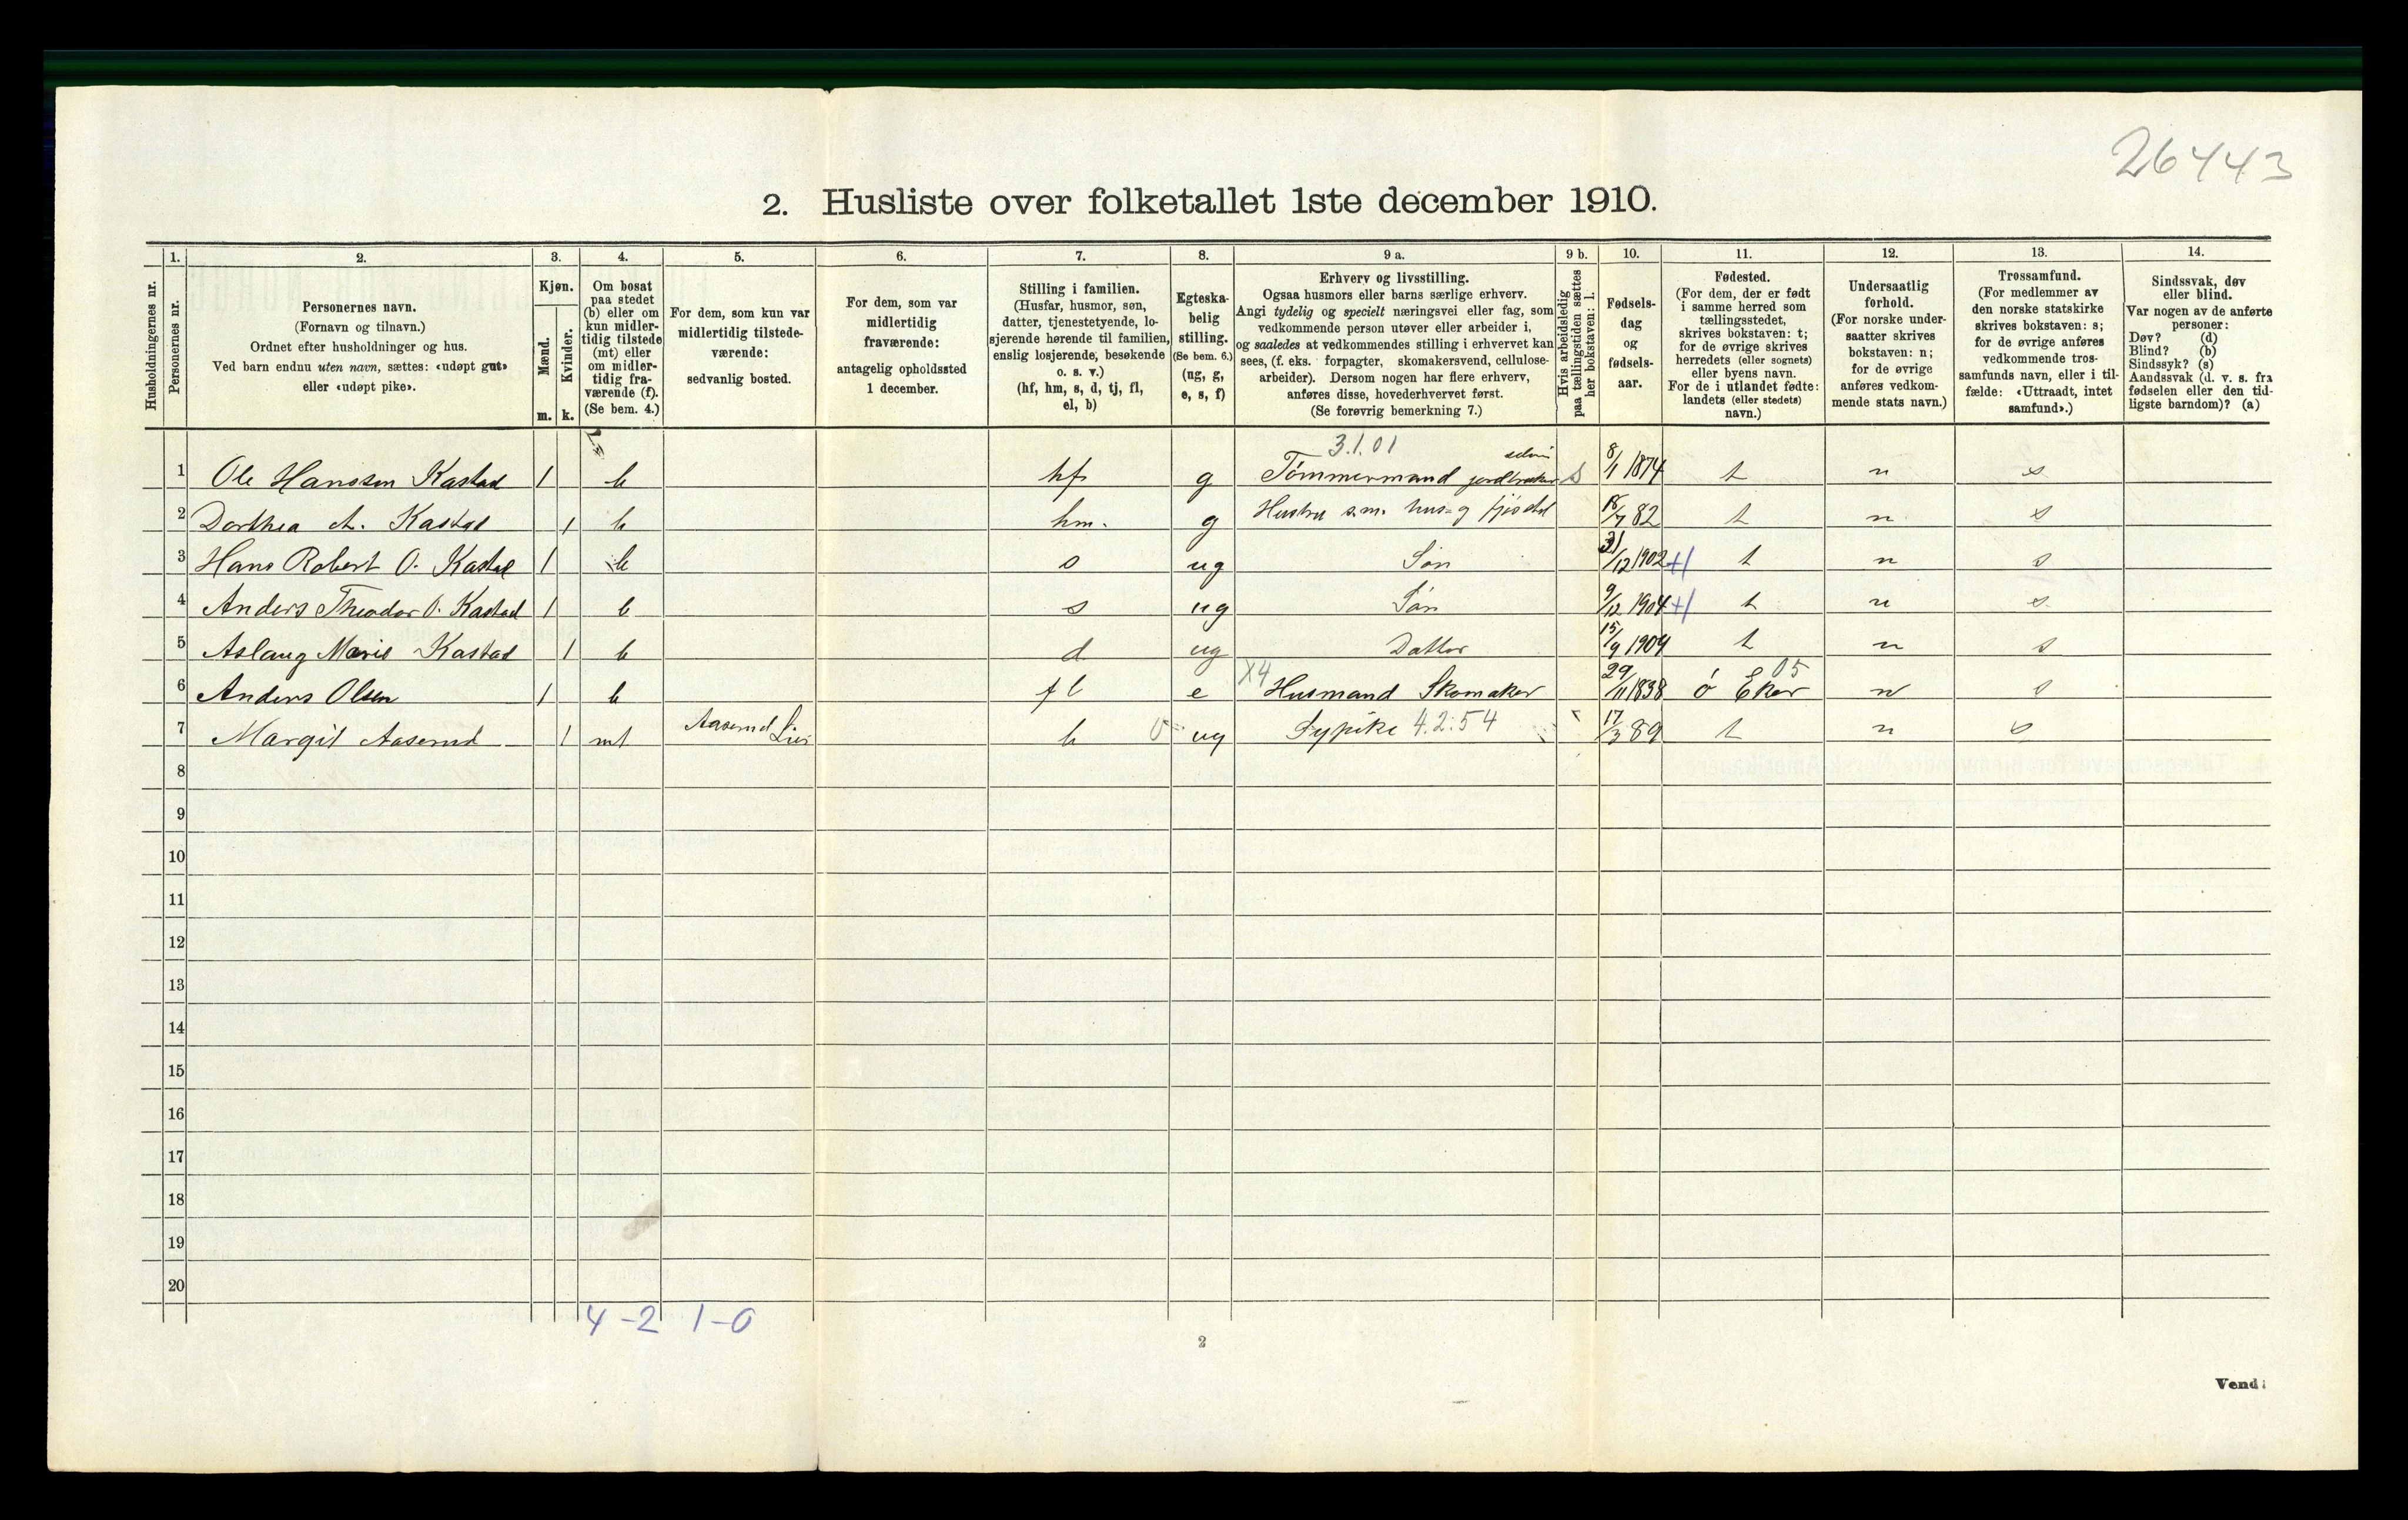 26443
2. Husliste over folketallet 1ste december 1910.
Husholdningernes nr.
1.
Personernes nr.
2.
Personernes navn.
(Fornavn og tilnavn.)
Ordnet efter husholdninger og hus.
Ved barn endnu uten navn, sættes: «udøpt gut»
eller «udøpt pike».
3.
Kjøn.
Mænd.
m.
Kvinder.
k.
4.
Om bosat
paa stedet
(b) eller om
kun midler-
tidig tilstede
(mt) eller
om midler-
tidig fra-
værende (f).
(Se bem. 4.)
5.
For dem, som kun var
midlertidig tilstede-
værende:
sedvanlig bosted.
6.
For dem, som var
midlertidig
fraværende:
antagelig opholdssted
1 december.
7.
Stilling i familien.
(Husfar, husmor, søn,
datter, tjenestetyende, lo-
sjerende hørende til familien,
enslig losjerende, besøkende
o. s. v.)
(hf, hm, s, d, tj, fl,
el, b)
8.
Egteska-
belig
stilling.
(Se bem. 6.)
(ug, g,
e, s, f)
9 a.
Erhverv og livsstilling.
Ogsaa husmors eller barns særlige erhverv.
Angi tydelig og specielt næringsvei eller fag, som
vedkommende person utøver eller arbeider i,
og saaledes at vedkommendes stilling i erhvervet kan
sees, (f. eks. forpagter, skomakersvend, cellulose-
arbeider). Dersom nogen har flere erhverv,
anføres disse, hovederhvervet først.
(Se forøvrig bemerkning 7.)
9 b.
Hvis arbeidsledig
paa tællingstiden sættes
her bokstaven: l.
10.
Fødsels-
dag
og
fødsels-
aar.
11.
Fødested.
(For dem, der er født
i samme herred som
tællingsstedet,
skrives bokstaven: t;
for de øvrige skrives
herredets (eller sognets)
eller byens navn.
For de i utlandet fødte:
landets (eller stedets)
navn.)
12.
Undersaatlig
forhold.
(For norske under-
saatter skrives
bokstaven: n;
for de øvrige
anføres vedkom-
mende stats navn.)
13.
Trossamfund.
(For medlemmer av
den norske statskirke
skrives bokstaven: s;
for de øvrige anføres
vedkommende tros-
samfunds navn, eller i til-
fælde: «Uttraadt, intet
samfund».)
14.
Sindssvak, døv
eller blind.
Var nogen av de anførte
personer:
Døv? (d)
Blind? (b)
Sindssyk? (s)
Aandssvak (d. v. s. fra
fødselen eller den tid-
ligste barndom)? (a)
3.1.01
1 Ole Hanssen Kastad 1 b hf g Tømmermand jordbruker s 8/1 1874 t n s
2 Dorthea A. Kastad 1 b hm. g Hustru s.m. hus- g fjøsstel 18/7 82 t n s
3 Hans Robert O. Kastad 1 b s ug Søn 31/12 1902 +1 t n s
4 Anders Theodor O. Kastad 1 b s ug Søn 9/12 1904 +1 t n s
5 Aslaug Marie Kastad 1 b d ug Datter 15/9 1909 t n s
6 Anders Olsen 1 b fl e X4 Husmand Skomaker 29/11 1838 ø Eker 05 n s
7 Margit Aaserud 1 mt Aaserud Lier b 0 ug Sypike 4.2.54 17/3 89 t n s
8
9
10
11
12
13
14
15
16
17
18
19
20
4-2 1-0
2
Vend!